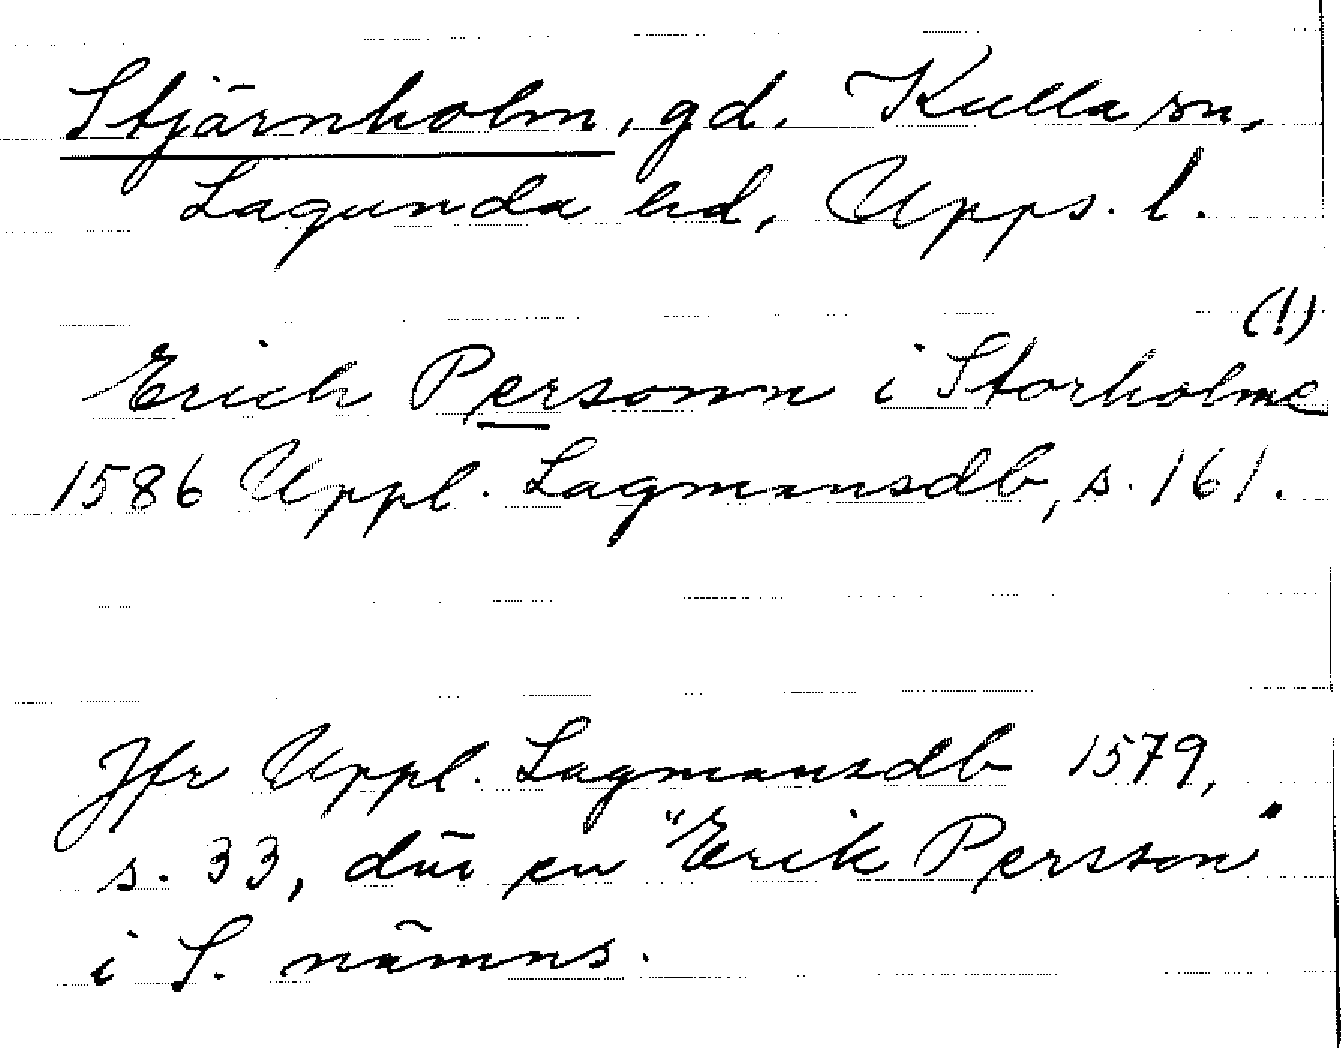 Stjärnholm, gd. Kulla sn,
Lagunda hd, Upps. l.
(!)
Erich Personn i Storholme
1586 Uppl. Lagmansdb, s. 161.
Jfr Uppl. Lagmansdb 1579,
s. 33, där en "Erik Person"
i S. nämns.